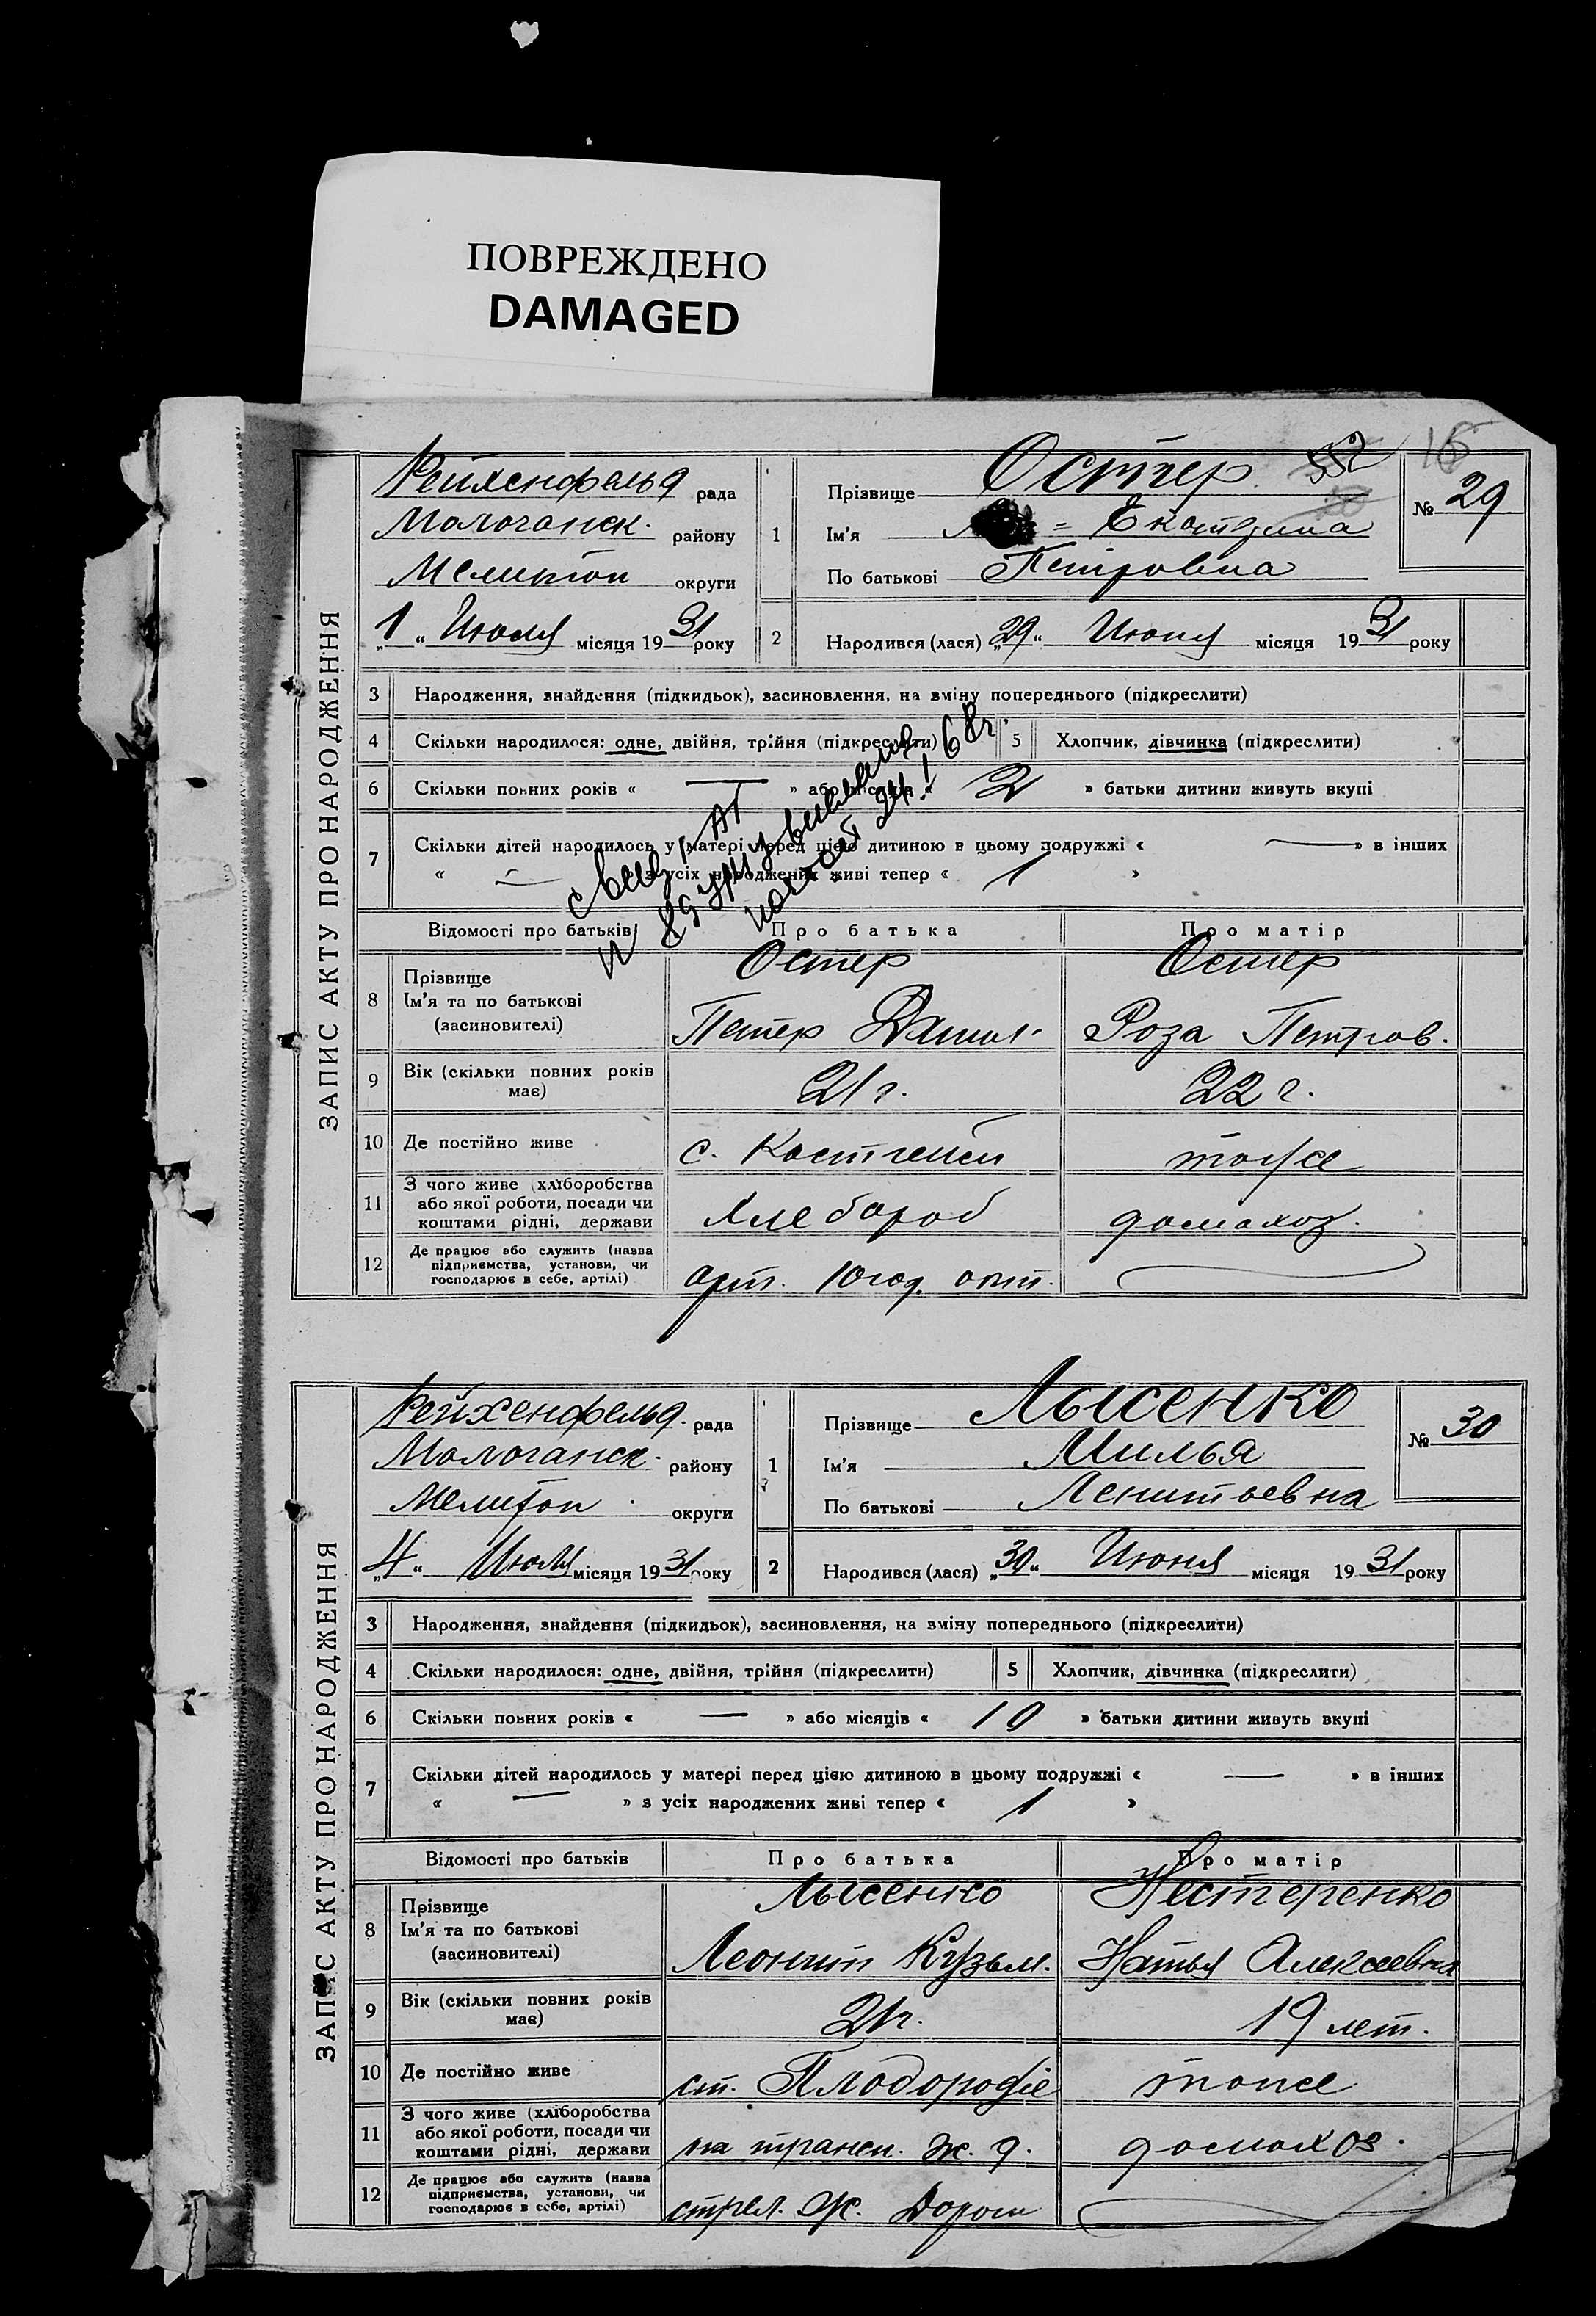 ПОВРЕЖДЕНО
DAMAGED
16
ЗАПИС АКТУ ПРО НАРОДЖЕННЯ
Рейхенфельд рада
Молочанск. району
Мелитоп округи
„1“ Июля місяця 1931 року
1
Прізвище Остер
Ім'я = Екатерина
По батькові Петровна
№ 29
2 Народився (лася) „29“ Июня місяця 1931 року
3 Народження, знайдення (підкидьок), засиновлення, на зміну попереднього (підкреслити)
4 Скільки народилося: одне, двійня, трійня (підкреслити) 5 Хлопчик, дівчинка (підкреслити)
6 Скільки повних років « — » або місяців « 2 » батьки дитини живуть вкупі
7 Скільки дітей народилось у матері перед цією дитиною в цьому подружжі « — » в інших
« — » з усіх народжених живі тепер « 1 »
Відомості про батьків Про батька Про матір
8 Прізвище Остер Остер
Ім'я та по батькові
(засновителі) Петер Данил. Роза Петров.
9 Вік (скільки повних років має) 21 г. 22 г.
10 Де постійно живе с. тоже
11 З чого живе (хліборобства або якої роботи, посади чи коштами рідні, держави Хлебороб домахоз.
12 Де працює або служить (назва підприємства, установи, чи господарює в себе, артілі) арт. —
ЗАПИС АКТУ ПРО НАРОДЖЕННЯ
Рейхенфельд. рада
Молочанск. району
Мелитоп. округи
„4“ Июля місяця 1931 року
1
Прізвище Лысенко
Ім'я Милья
По батькові Ленитоевна
№ 30
2 Народився (лася) „30“ Июня місяця 1931 року
3 Народження, знайдення (підкидьок), засиновлення, на зміну попереднього (підкреслити)
4 Скільки народилося: одне, двійня, трійня (підкреслити) 5 Хлопчик, дівчинка (підкреслити)
6 Скільки повних років « — » або місяців « 10 » батьки дитини живуть вкупі
7 Скільки дітей народилось у матері перед цією дитиною в цьому подружжі « — » в інших
« — » з усіх народжених живі тепер « 1 »
Відомості про батьків Про батька Про матір
8 Прізвище Лысенко Нестеренко
Ім'я та по батькові
(засиновителі) Леонит Кузьм. Наталья Алексеевна
9 Вік (скільки повних років має) 21 г. 19 лет.
10 Де постійно живе ст. Плодородіе тоже
11 З чого живе (хліборобства або якої роботи, посади чи коштами рідні, держави на трансп. ж. д. домахоз.
12 Де працює або служить (назва підприємства, установи, чи господарює в себе, артілі) стрел. Ж. Дороги —